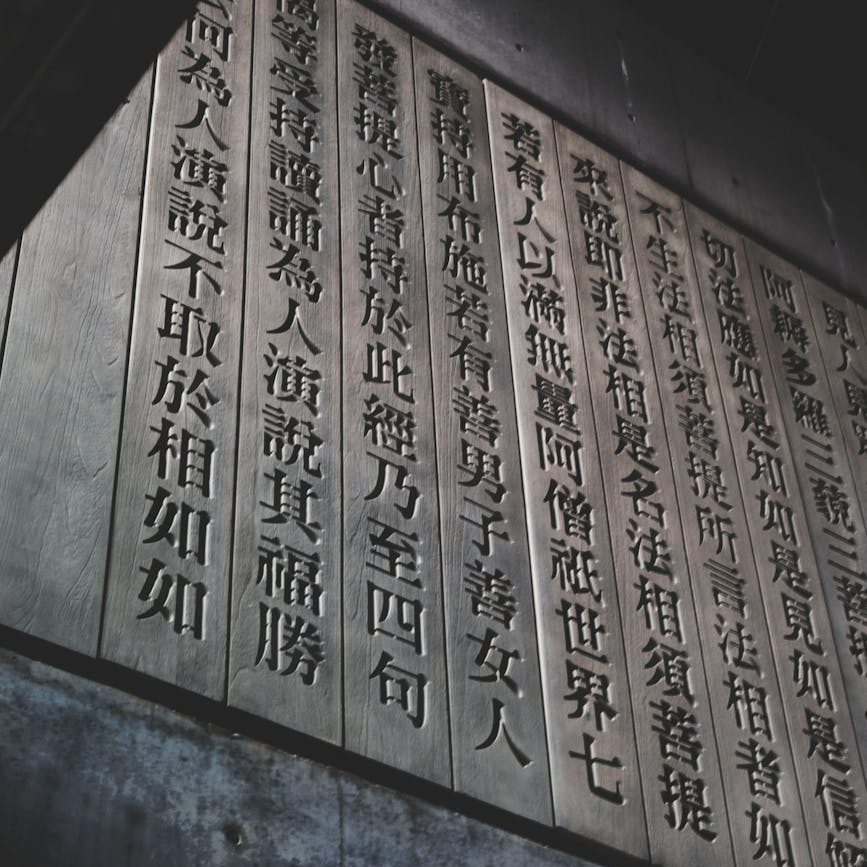 見人見
阿耨多羅三藐三菩提
切法應如是知如是見如是信解
不生法相須菩提所言法相者如
來說即非法相是名法相須菩提
若有人以滿無量阿僧祇世界七
寶持用布施若有善男子善女人
發菩提心者持於此經乃至四句
偈等受持讀誦為人演說其福勝
何為人演說不取於相如如